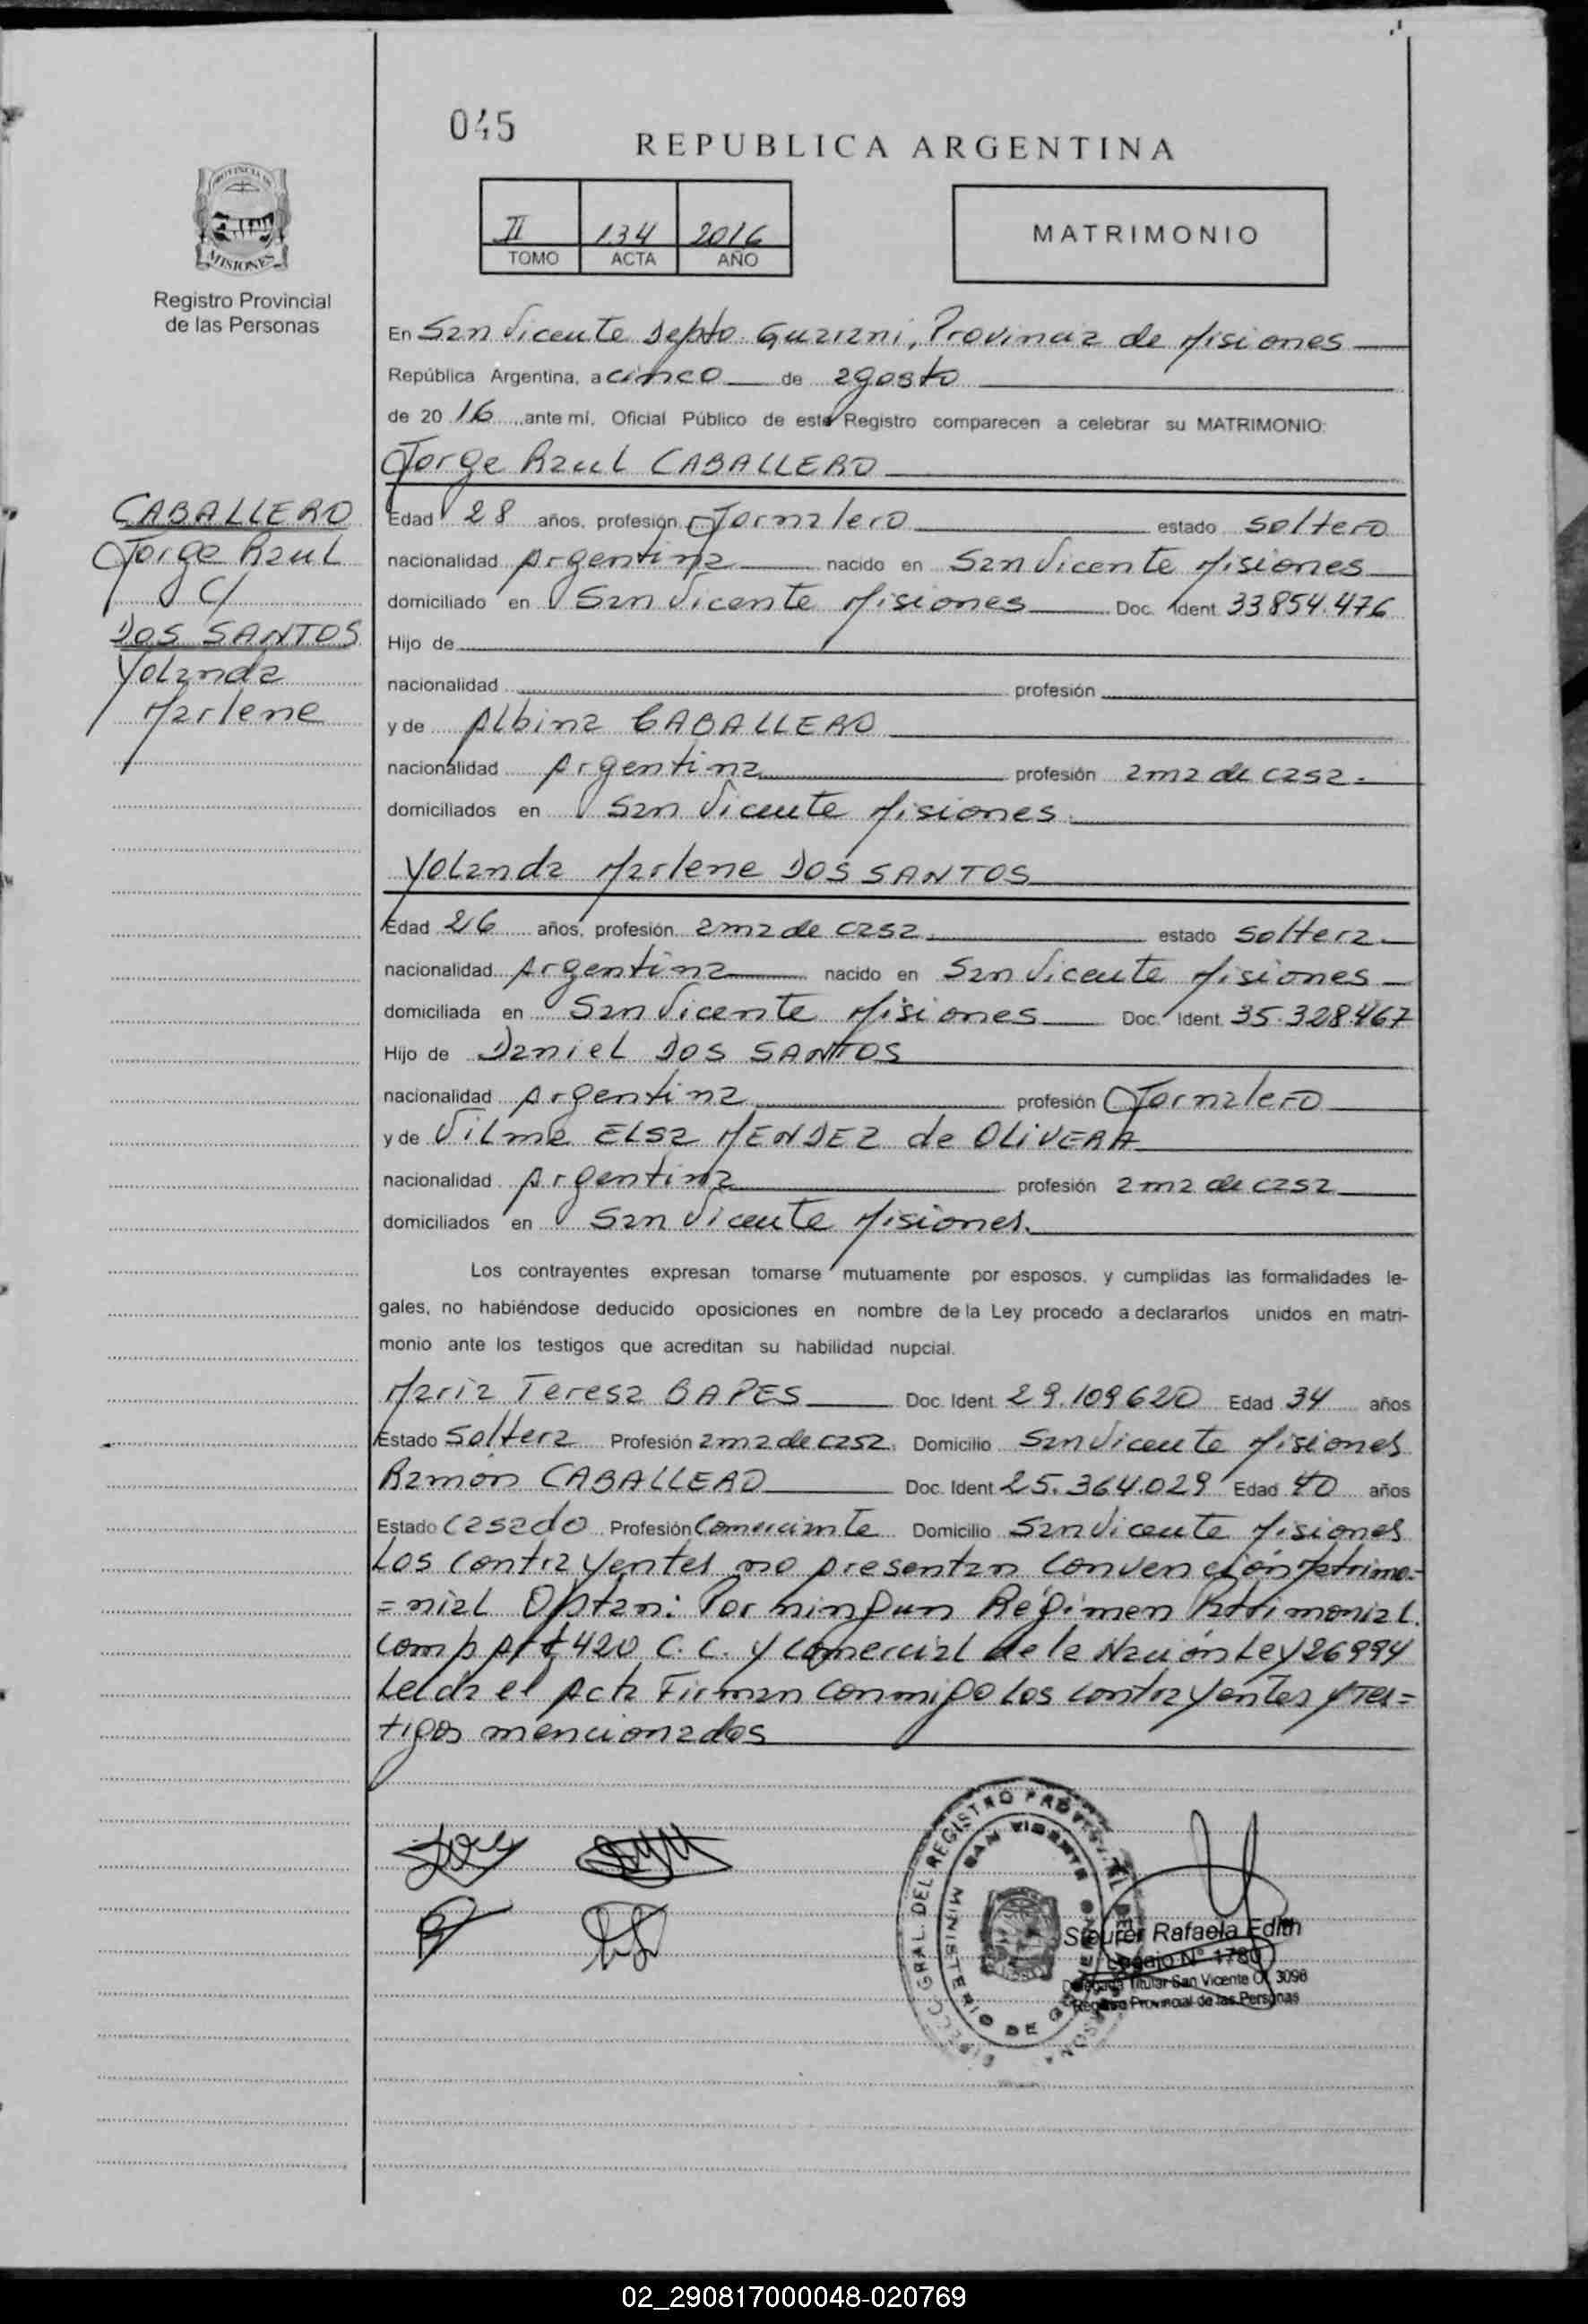 045
REPUBLICA ARGENTINA
PROVINCIA DE
MISIONES
Registro Provincial
de las Personas
II 134 2016
TOMO ACTA AÑO
MATRIMONIO
En San Vicente Depto. Guarani, Provincia de Misiones
República Argentina, a cinco de agosto
de 2016 ante mí, Oficial Público de este Registro comparecen a celebrar su MATRIMONIO:
Jorge Raul CABALLERO
CABALLERO
Jorge Raul
C/
DOS SANTOS
Yolanda
Marlene
Edad 28 años, profesión Jornalero estado soltero
nacionalidad Argentina nacido en San Vicente Misiones
domiciliado en San Vicente Misiones Doc. Ident. 33854.476
Hijo de
nacionalidad profesión
y de Albina CABALLERO
nacionalidad Argentina profesión ama de casa.
domiciliados en San Vicente Misiones.
Yolanda Marlene DOS SANTOS
Edad 26 años, profesión ama de casa. estado soltera
nacionalidad Argentina nacido en San Vicente Misiones
domiciliada en San Vicente Misiones Doc. Ident. 35.328.467
Hijo de Daniel DOS SANTOS
nacionalidad Argentina profesión Jornalero
y de Vilma ELSA MENDEZ de OLIVERA
nacionalidad Argentina profesión ama de casa
domiciliados en San Vicente Misiones.
Los contrayentes expresan tomarse mutuamente por esposos, y cumplidas las formalidades le-
gales, no habiéndose deducido oposiciones en nombre de la Ley procedo a declararlos unidos en matri-
monio ante los testigos que acreditan su habilidad nupcial.
Maria Teresa BAPES Doc. Ident. 29.109620 Edad 34 años
Estado Soltera Profesión ama de casa. Domicilio San Vicente Misiones
Ramón CABALLERO Doc. Ident. 25.364.029 Edad 40 años
Estado Casado Profesión Comerciante Domicilio San Vicente Misiones
Los Contrayentes no presentan Convención Patrimo-
=nial Optan: Por ningun Régimen Patrimonial.
Comp Art 420 C. C. y Comercial de la Nación Ley 26994
Leida el Acta Firman conmigo los contrayentes y Tes=
tigos mencionados
SAN VICENTE
MINISTERIO DE GOBIERNO
Steurer Rafaela Edith
Legajo N° 1780
Delegada Titular San Vicente Of. 3096
Registro Provincial de las Personas
02_290817000048-020769